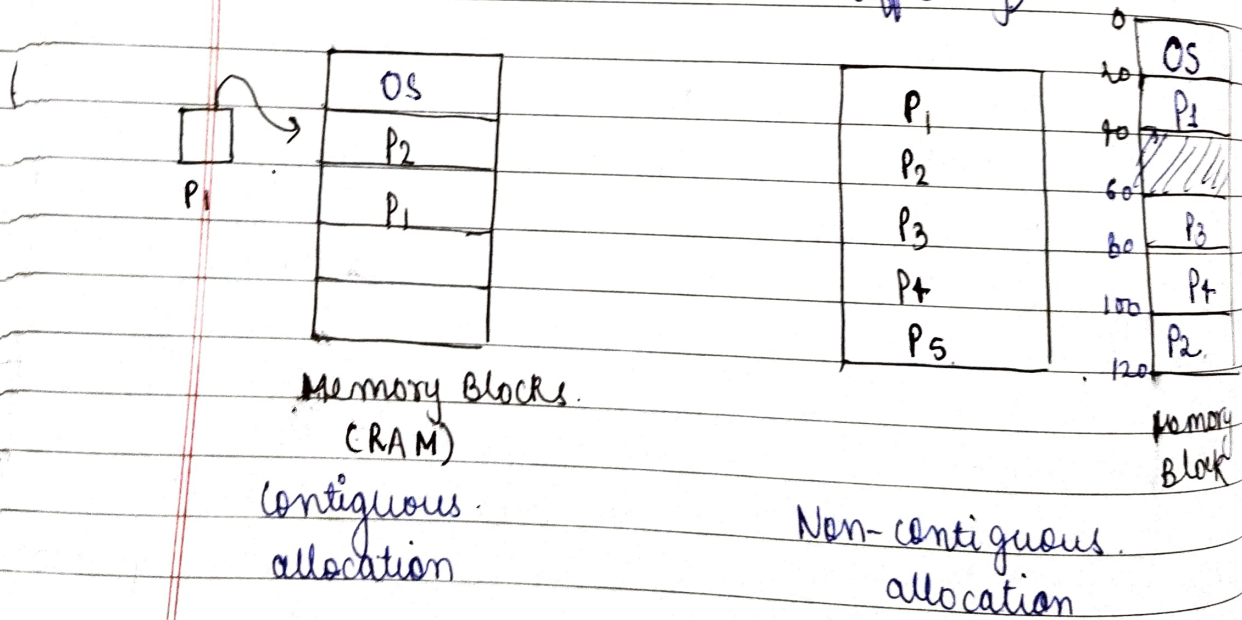 P1
OS
P2
P1
Memory Blocks.
(RAM)
Contiguous.
allocation
P1
P2
P3
P4
P5
0
20
40
60
80
100
120
OS
P1
P3
P4
P2.
Memory
Block
Non-contiguous.
allocation